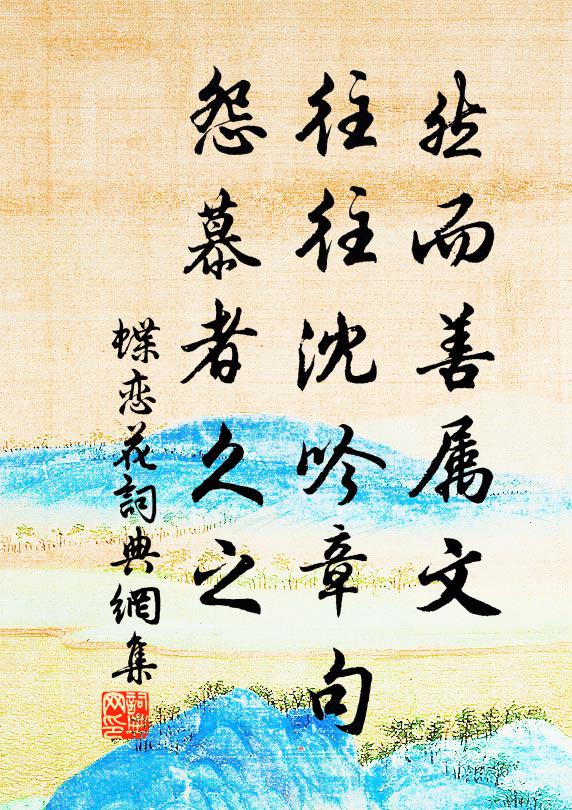 然而善属文
往往沈吟章句
怨慕者久之
蝶恋花詞典網集